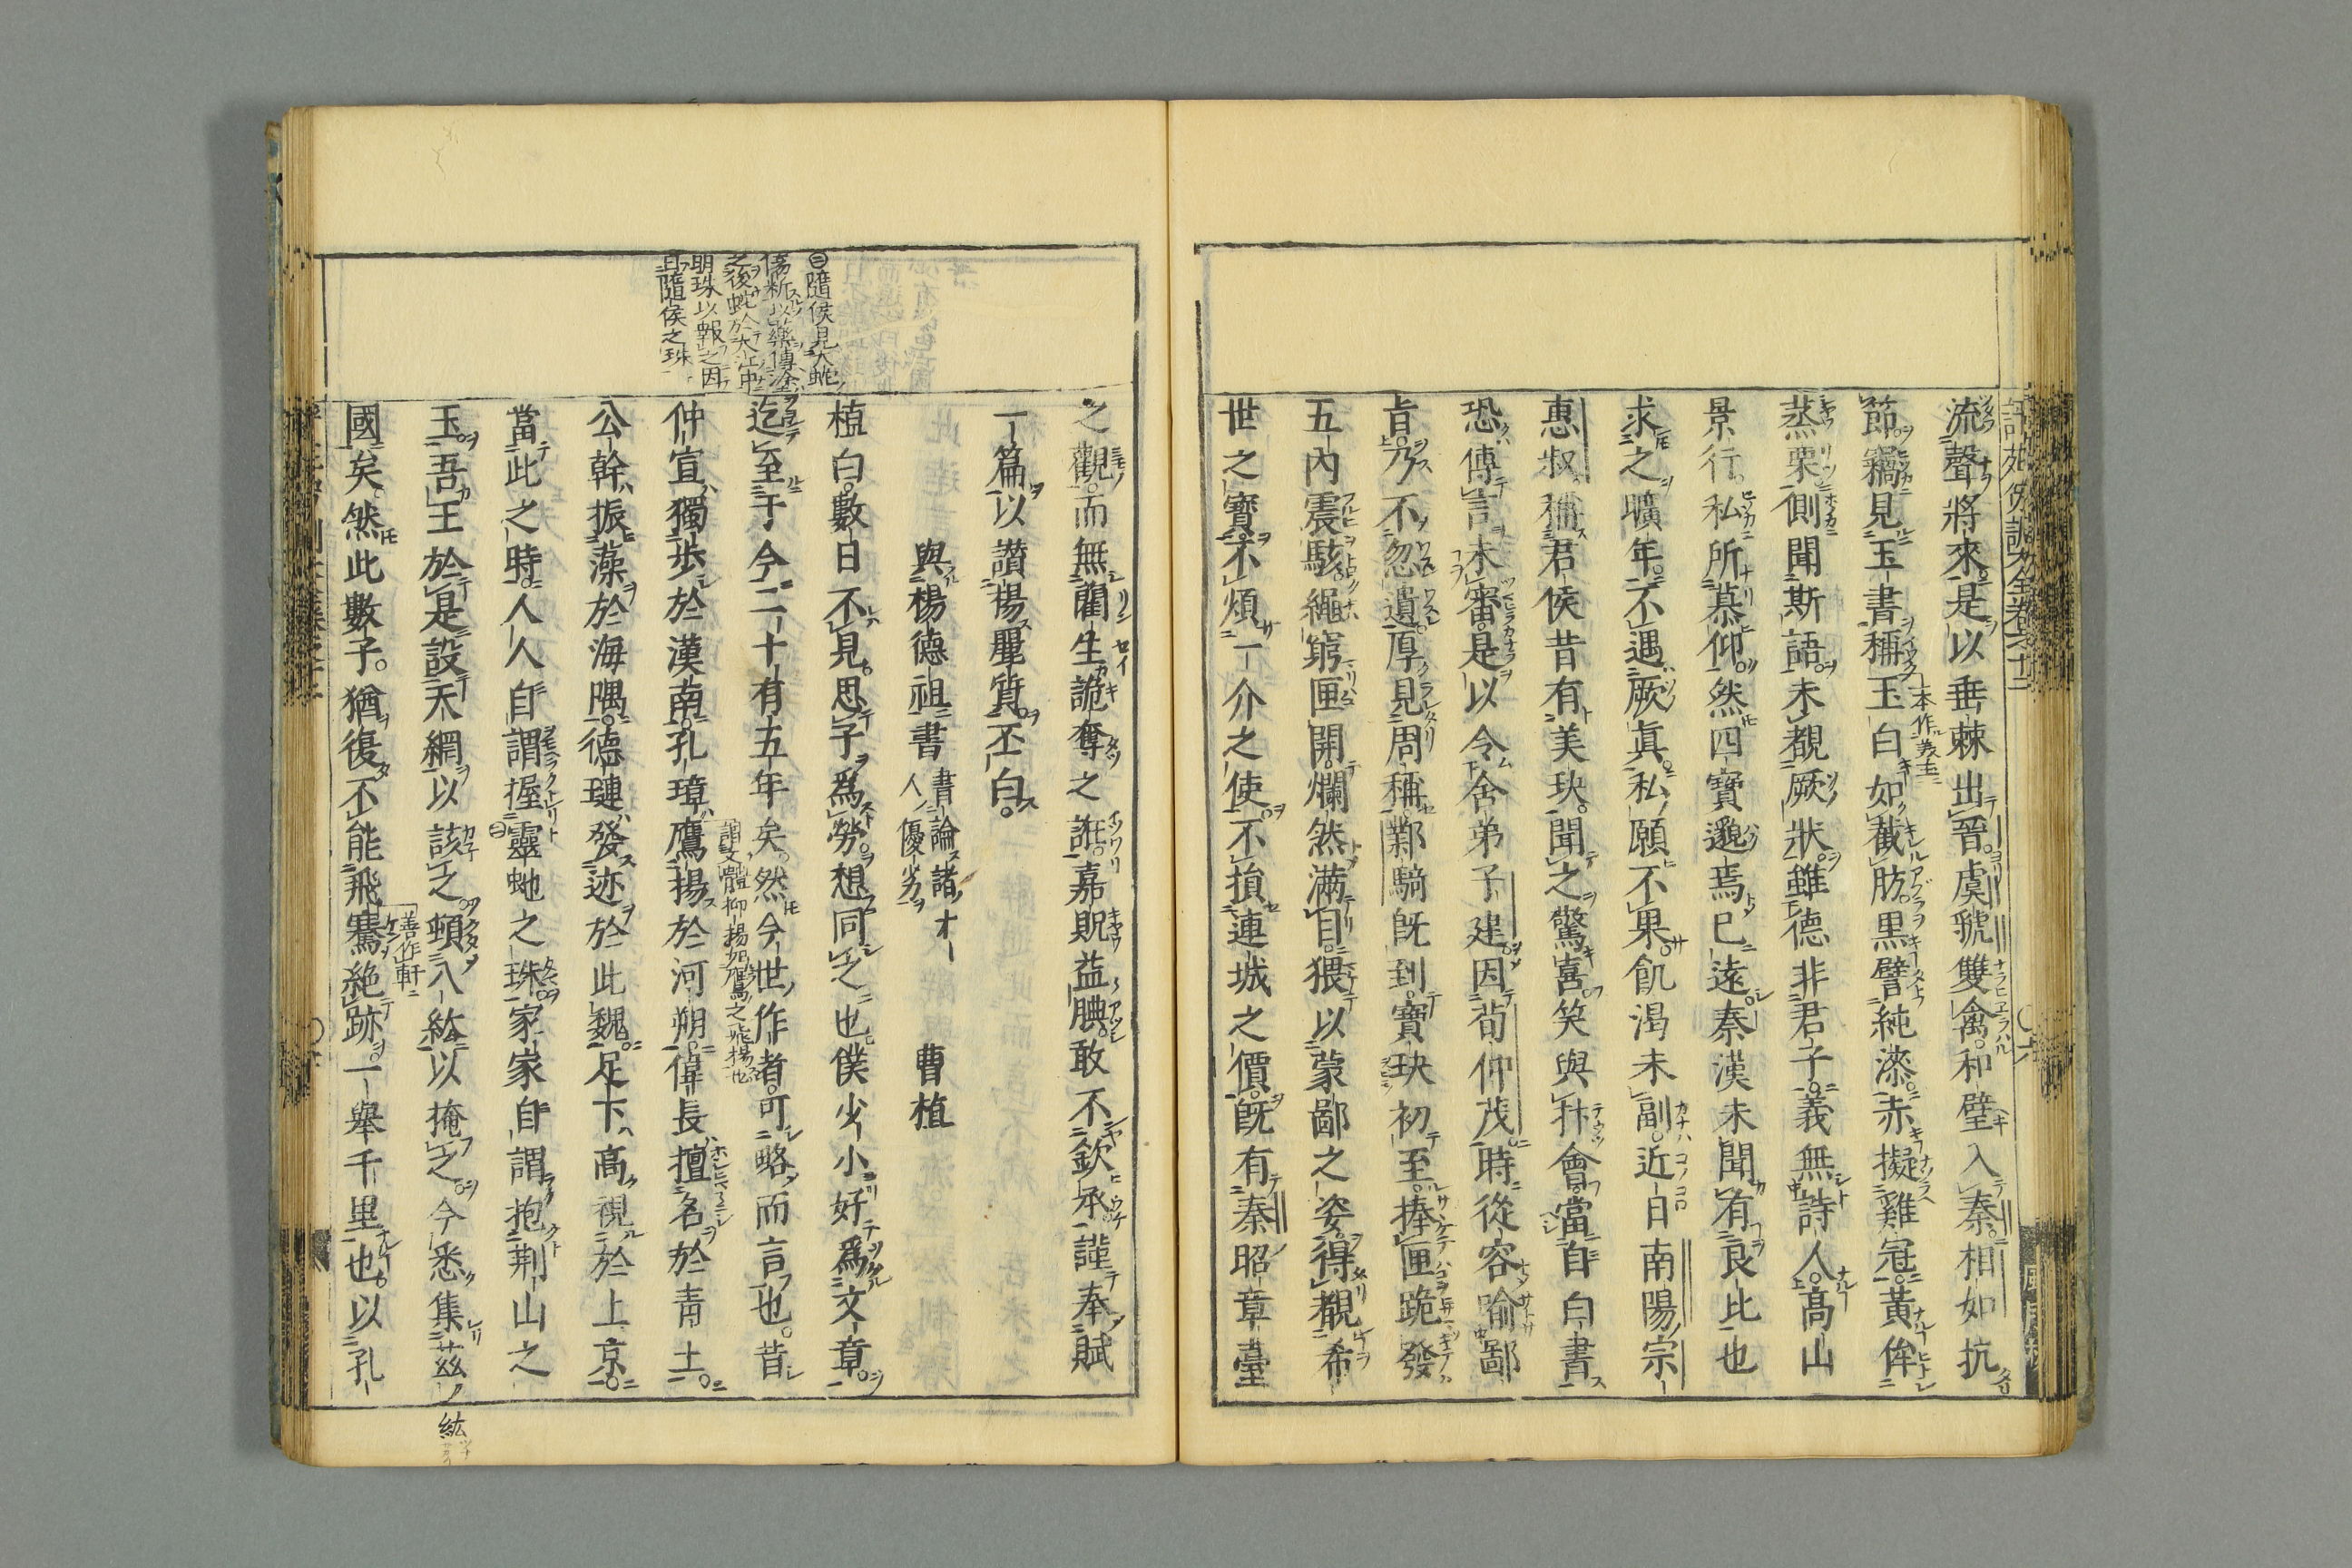 流聲將來是以垂棘出晉虞虢雙禽和璧入秦相如抗
節竊見玉書稱玉白如截肪黒譬純漆赤擬雞冠黃侔
一本作美玉
蒸栗側聞斯語未覩厥狀雖德非君子義無詩人高山
景行私所慕仰然四寶邈焉已遠秦漢未聞有良比也
求之曠年不遇厥真私願不果飢渴未副近日南陽宗
惠叔稱君侯昔有美玦聞之驚喜笑與抃會當自白書
恐傳言未審是以令舍弟子建因荀仲茂時從容喻鄙
旨乃不忽遺厚見周稱鄴騎旣到寶玦初至捧匣跪發
五內震駭繩窮匣開爛然滿目猥以蒙鄙之姿得覩希
世之寶不煩一介之使不損連城之價旣有秦昭章臺
之觀而無藺生詭奪之誑嘉貺益腆敢不欽承謹奉賦
一篇以讚揚麗質丕白
與楊德祖書 書論諸才人優劣 曹植
㊁隨侯見大蛇
傷斷以藥傅塗
之後蛇於大江中
明珠以報之因
曰隨侯之珠
植白數日不見思子爲勞想同之也僕少小好爲文章
迄至于今二十有五年矣然今世作者可略而言也昔
仲宣獨步於漢南孔璋鷹揚於河朔偉長擅名於青土
謂文體抑揚如鷹之飛揚也
公幹振藻於海隅德璉發迹於此魏足下高視於上京
當此之時人人自謂握靈蛇之珠家家自謂抱荊山之
玉吾王於是設天網以該之頓八紘以掩之今悉集茲
紘
國矣然此數子猶復不能飛騫絶跡一舉千里也以孔
善作軒